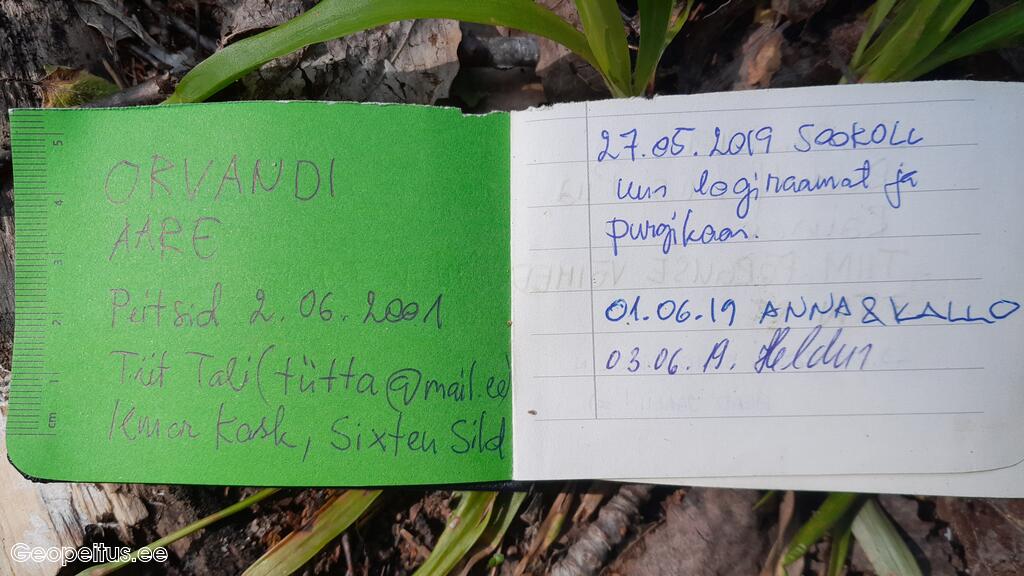 ORVANDI
AARE
Peitsid 2.06.2001
Tiit Tali (tütta@mail.ee)
Kmar Kask, Sixten Sild
27.05.2019 SOOKOLL
uus logiraamat ja
purgikaas.
01.06.19 ANNA&KALLO
03.06.19. Heldur
5
4
3
2
1
cm
Geopeitus.ee